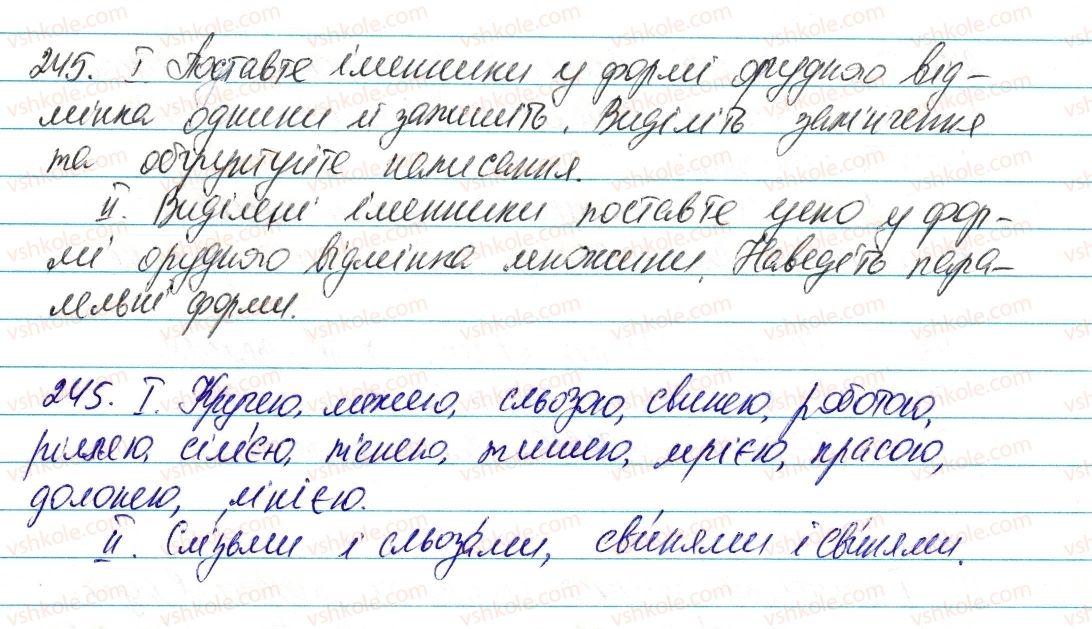 245. I Поставте іменники у формі орудного від-
мінка однини й запишіть. Виділіть закінчення
та обґрунтуйте написання.
II. Виділені іменники поставте усно у фор-
мі орудного відмінка множини. Наведіть пара-
лельні форми.
245. I. Кручею, межею, сльозою, свинею, роботою,
ріллею, сім'єю, піснею, тишею, мрією, прасою,
долонею, лінією.
II. Слізьми і сльоза́ми, сви́нями і сві́нями.